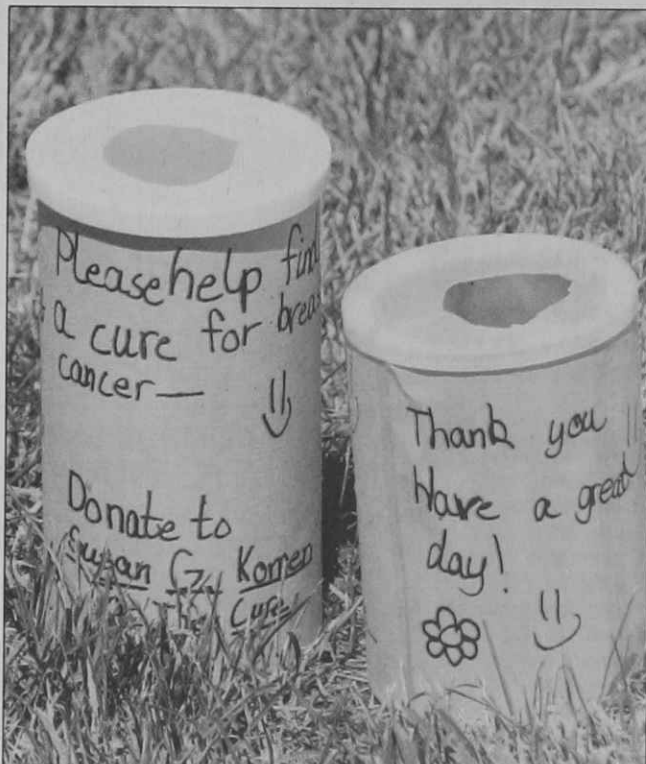 Please help find
a cure for breast
cancer—
Donate to
Susan G. Komen
for the Cure
Thank you!!
Have a great
day!